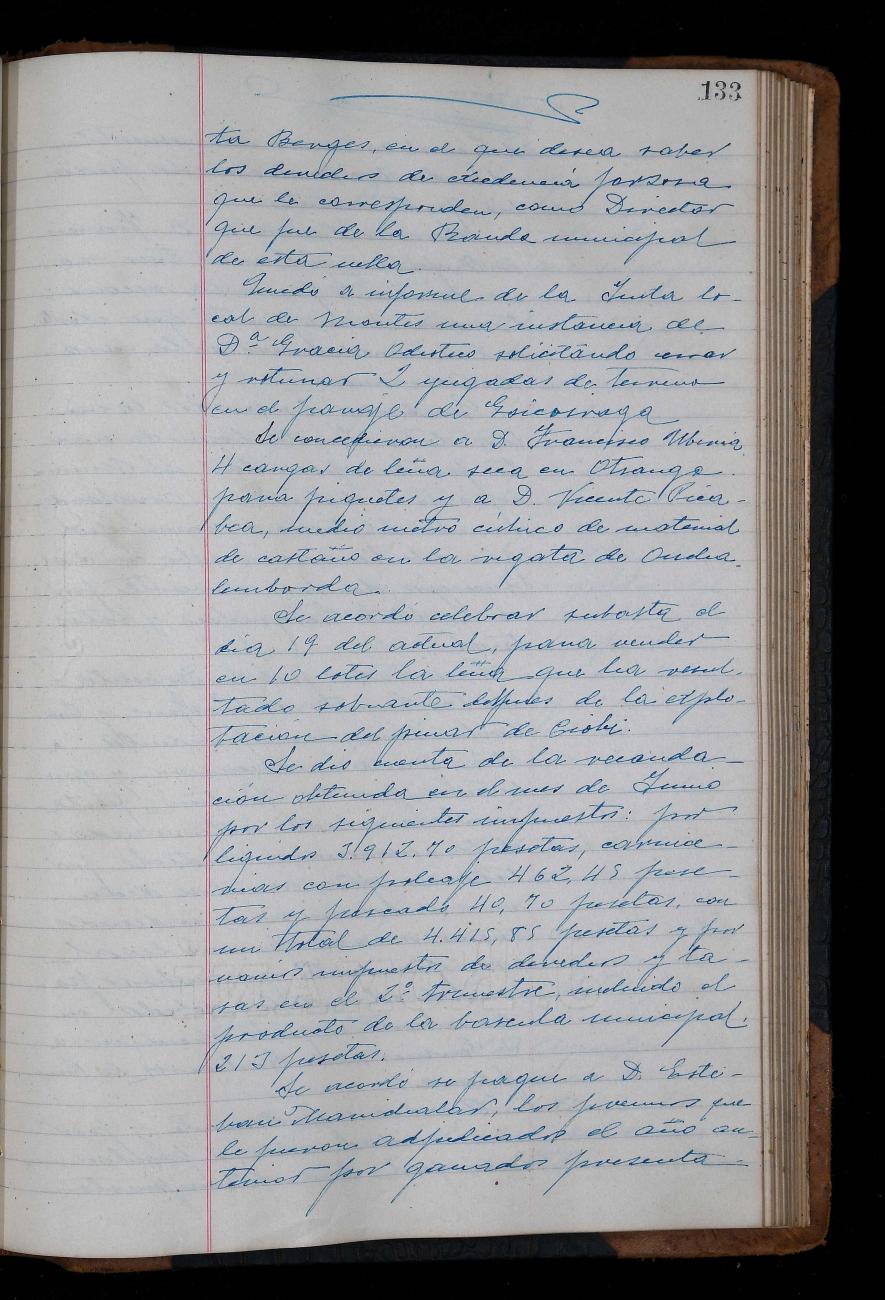 133
ta Berges, en el que desea saber
los derechos de excedencia forzosa
que le corresponden, como Director
que fue de la Banda municipal
de esta villa.
Quedó a informe de la Junta lo-
cal de Montes una instancia de
Dª Gracia solicitando cerrar
y roturar 2 yugadas de terreno
en el paraje de
Se concedieron a D. Francisco Ubiria
4 cargas de leña seca en Otsango
para piquetes y a D. Vicente Pica-
bea, medio metro cúbico de material
de castaño en la regata de Ondia-
lemborda.
Se acordó celebrar subasta el
dia 19 del actual, para vender
en 10 lotes la leña que ha resul-
tado sobrante despues de la explo-
tación del pinar de
Se dió cuenta de la recauda-
ción obtenida en el mes de Junio
por los siguientes impuestos: por
liquidos 3.912.70 pesetas, carnice-
rias con poleaje 462,45 pese-
tas y pescado 40,70 pesetas, con
un total de 4.415,85 pesetas y por
varios impuestos de derechos y ta-
sas en el 2º trimestre, incluido el
producto de la bascula municipal.
213 pesetas.
Se acordó se pague a D. Este-
ban los premios que
le fueron adjudicados el año an-
terior por ganados presenta-